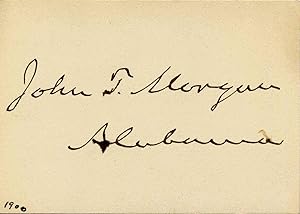 John T. Morgan
Alabama
1900